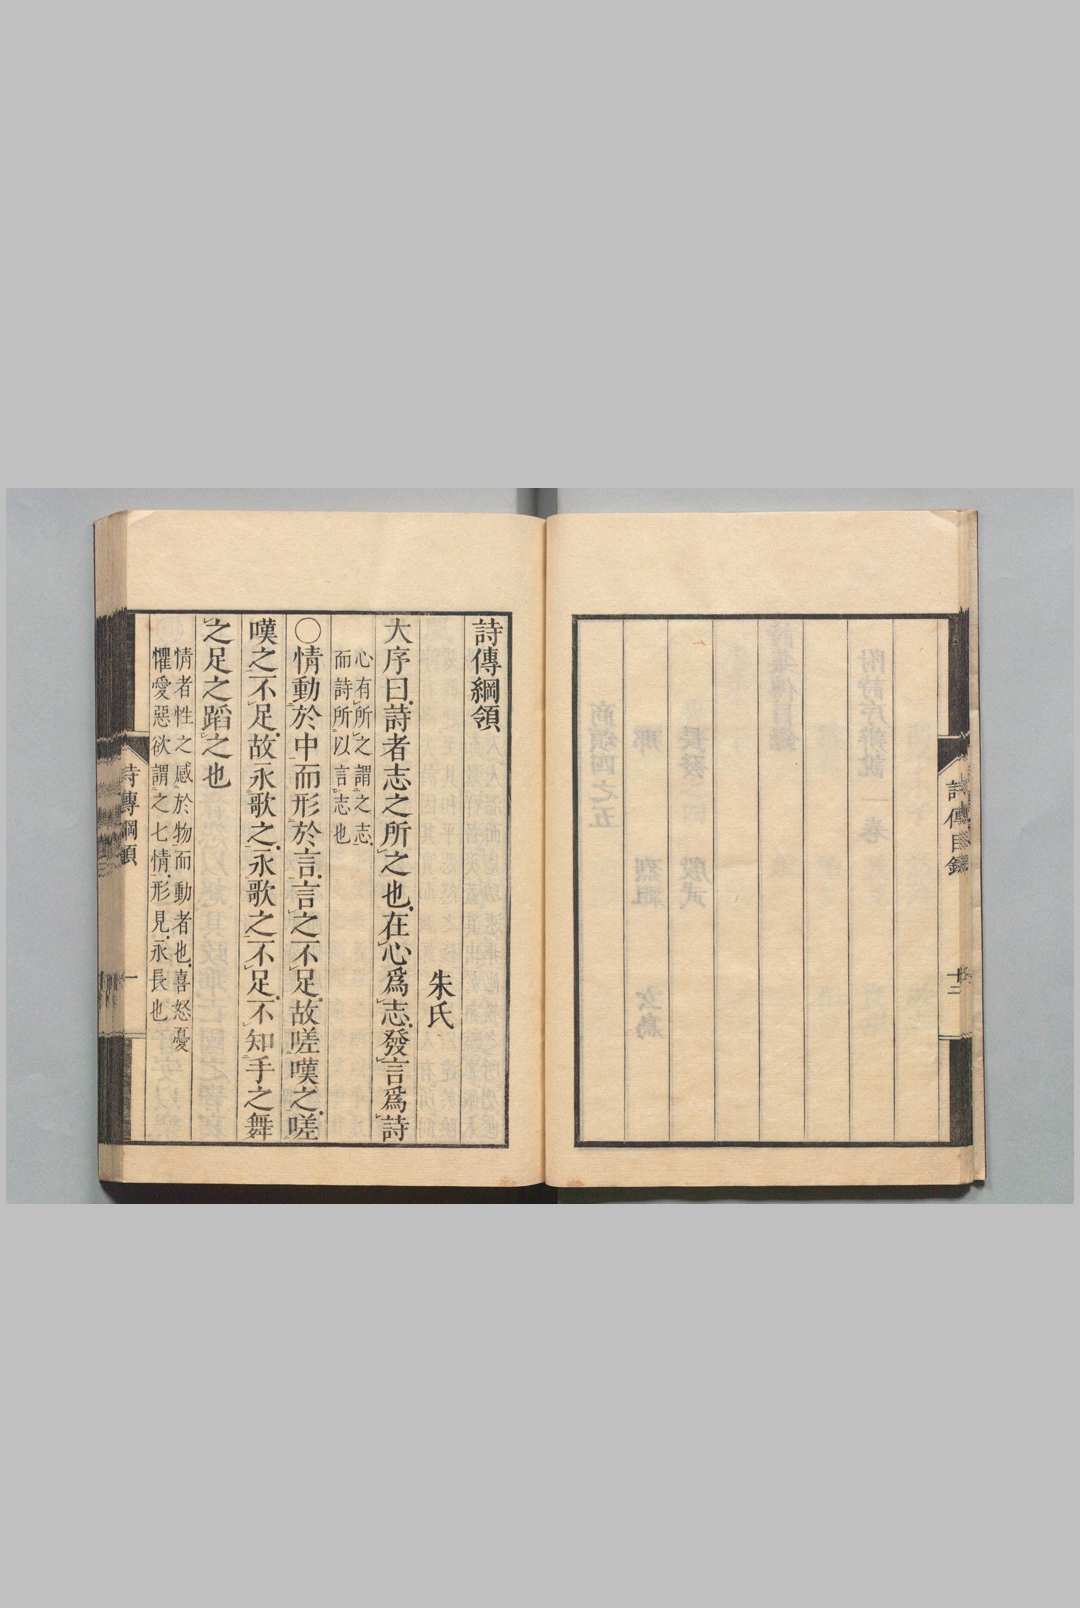 詩傳目錄
十三
詩傳綱領
朱氏
大序曰詩者志之所之也在心爲志發言爲詩
心有所之謂之志
而詩所以言志也
○情動於中而形於言言之不足故嗟嘆之嗟
嘆之不足故永歌之永歌之不足不知手之舞
之足之蹈之也
情者性之感於物而動者也喜怒憂
懼愛惡欲謂之七情形見永長也
詩傳綱領
一